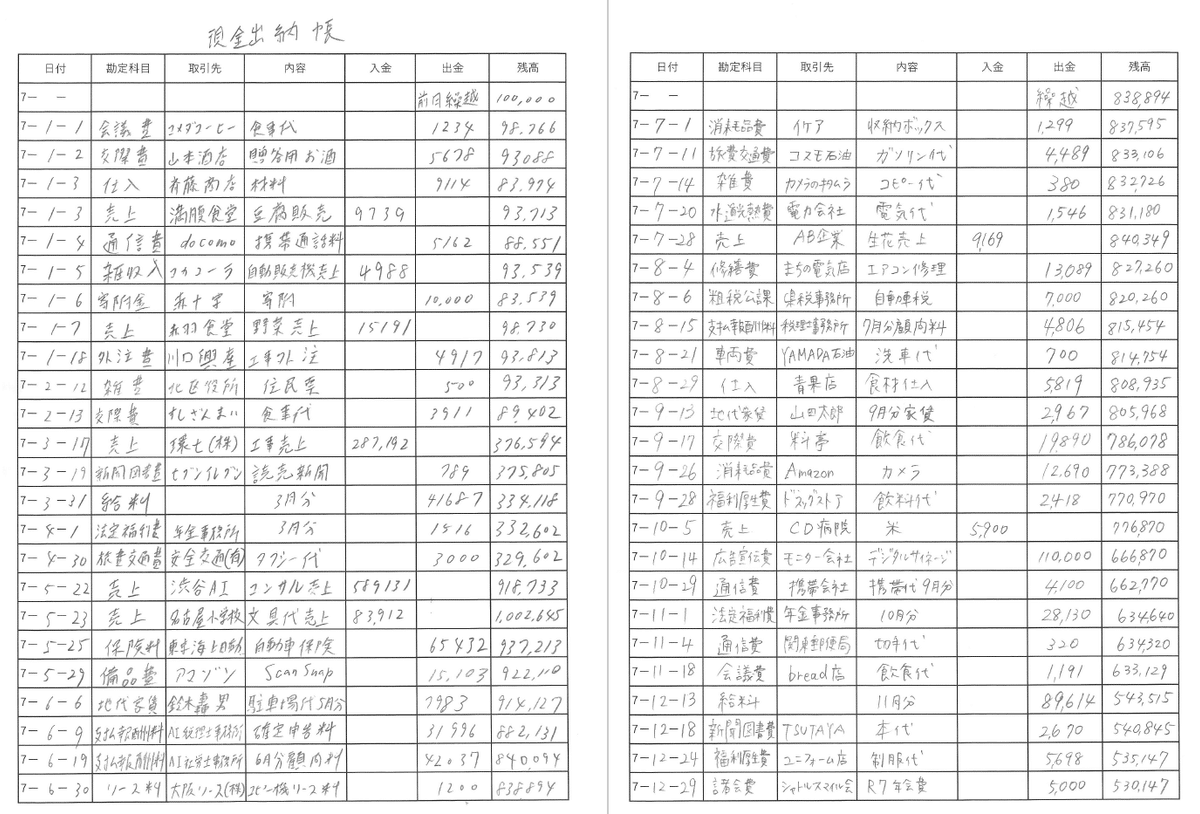 現金出納帳
日付 勘定科目 取引先 内容 入金 出金 残高
7- - 前月繰越 100,000
7-1-1 会議費 コメダコーヒー 食事代 1234 98,766
7-1-2 交際費 山本酒店 贈答用お酒 5678 93088
7-1-3 仕入 斉藤商店 材料 9114 83,974
7-1-3 売上 満腹食堂 豆腐販売 9739 93,713
7-1-4 通信費 docomo 携帯通話料 5162 88,551
7-1-5 雑収入 コカコーラ 自動販売機売上 4988 93,539
7-1-6 寄附金 赤十字 寄附 10,000 83,539
7-1-7 売上 赤羽食堂 野菜売上 15191 98,730
7-1-18 外注費 川口興産 工事外注 4917 93,813
7-2-12 雑費 北区役所 住民票 500 93,313
7-2-13 交際費 すしざんまい 食事代 3911 89,402
7-3-17 売上 環七(株) 工事売上 287,192 376,594
7-3-19 新聞図書費 セブンイレブン 読売新聞 789 375,805
7-3-31 給料 3月分 41687 334,118
7-4-1 法定福利費 年金事務所 3月分 1516 332,602
7-4-30 旅費交通費 安全交通(有) タクシー代 3000 329,602
7-5-22 売上 渋谷AI コンサル売上 589131 918,733
7-5-23 売上 名古屋小学校 文具代売上 83,912 1,002,645
7-5-25 保険料 東京海上日動 自動車保険 65432 937,213
7-5-29 備品費 アマゾン ScanSnap 15,103 922,110
7-6-6 地代家賃 鈴木壽男 駐車場代5月分 7983 914,127
7-6-9 支払報酬料 AI税理士事務所 確定申告料 31996 882,131
7-6-19 支払報酬料 AI社労士事務所 6月分顧問料 42037 840,094
7-6-30 リース料 大阪リース(株) コピー機リース料 1200 838,894
日付 勘定科目 取引先 内容 入金 出金 残高
7- - 繰越 838,894
7-7-1 消耗品費 イケア 収納ボックス 1,299 837,595
7-7-11 旅費交通費 コスモ石油 ガソリン代 4,489 833,106
7-7-14 雑費 カメラのキタムラ コピー代 380 832,726
7-7-20 水道光熱費 電力会社 電気代 1,546 831,180
7-7-28 売上 AB企業 生花売上 9,169 840,349
7-8-4 修繕費 まちの電気店 エアコン修理 13,089 827,260
7-8-6 租税公課 県税事務所 自動車税 7,000 820,260
7-8-15 支払報酬料 税理士事務所 7月分顧問料 4,806 815,454
7-8-21 車両費 YAMADA石油 洗車代 700 814,754
7-8-29 仕入 青果店 食材仕入 5,819 808,935
7-9-13 地代家賃 山田太郎 9月分家賃 2,967 805,968
7-9-17 交際費 料亭 飲食代 19,890 786,078
7-9-26 消耗品費 Amazon カメラ 12,690 773,388
7-9-28 福利厚生費 ドラッグストア 飲料代 2,418 770,970
7-10-5 売上 CD病院 米 5,900 776,870
7-10-14 広告宣伝費 モニター会社 デジタルサイネージ 110,000 666,870
7-10-29 通信費 携帯会社 携帯代9月分 4,100 662,770
7-11-1 法定福利費 年金事務所 10月分 28,130 634,640
7-11-4 通信費 関東郵便局 切手代 320 634,320
7-11-18 会議費 bread店 飲食代 1,191 633,129
7-12-13 給料 11月分 89,614 543,515
7-12-18 新聞図書費 TSUTAYA 本代 2,670 540,845
7-12-24 福利厚生費 ユニフォーム店 制服代 5,698 535,147
7-12-29 諸会費 シャトルスマイル会 R7年会費 5,000 530,147